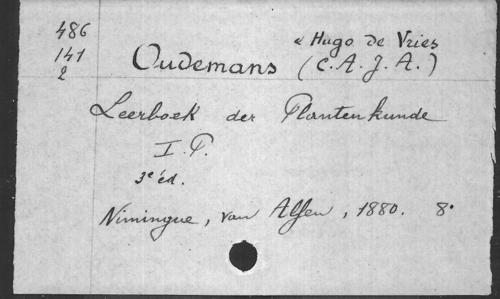 486
141
2
« Hugo de Vries
Oudemans (C. A. J. A.)
Leerboek der Plantenkunde
I. P.
3e éd.
Nimingue, van Alfen, 1880. 8°